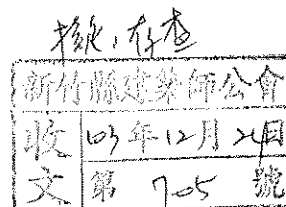 擬:存查
新竹縣建築師公會
收文
103年12月24日
第 705 號